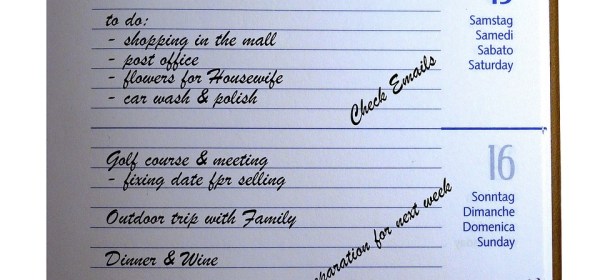 to do:
- shopping in the mall
- post office
- flowers for Housewife
- car wash & polish
Check Emails
Samstag
Samedi
Sabato
Saturday
Golf course & meeting
- fixing date fpr selling
Outdoor trip with Family
Dinner & Wine
paration for next week
16
Sonntag
Dimanche
Domenica
Sunday